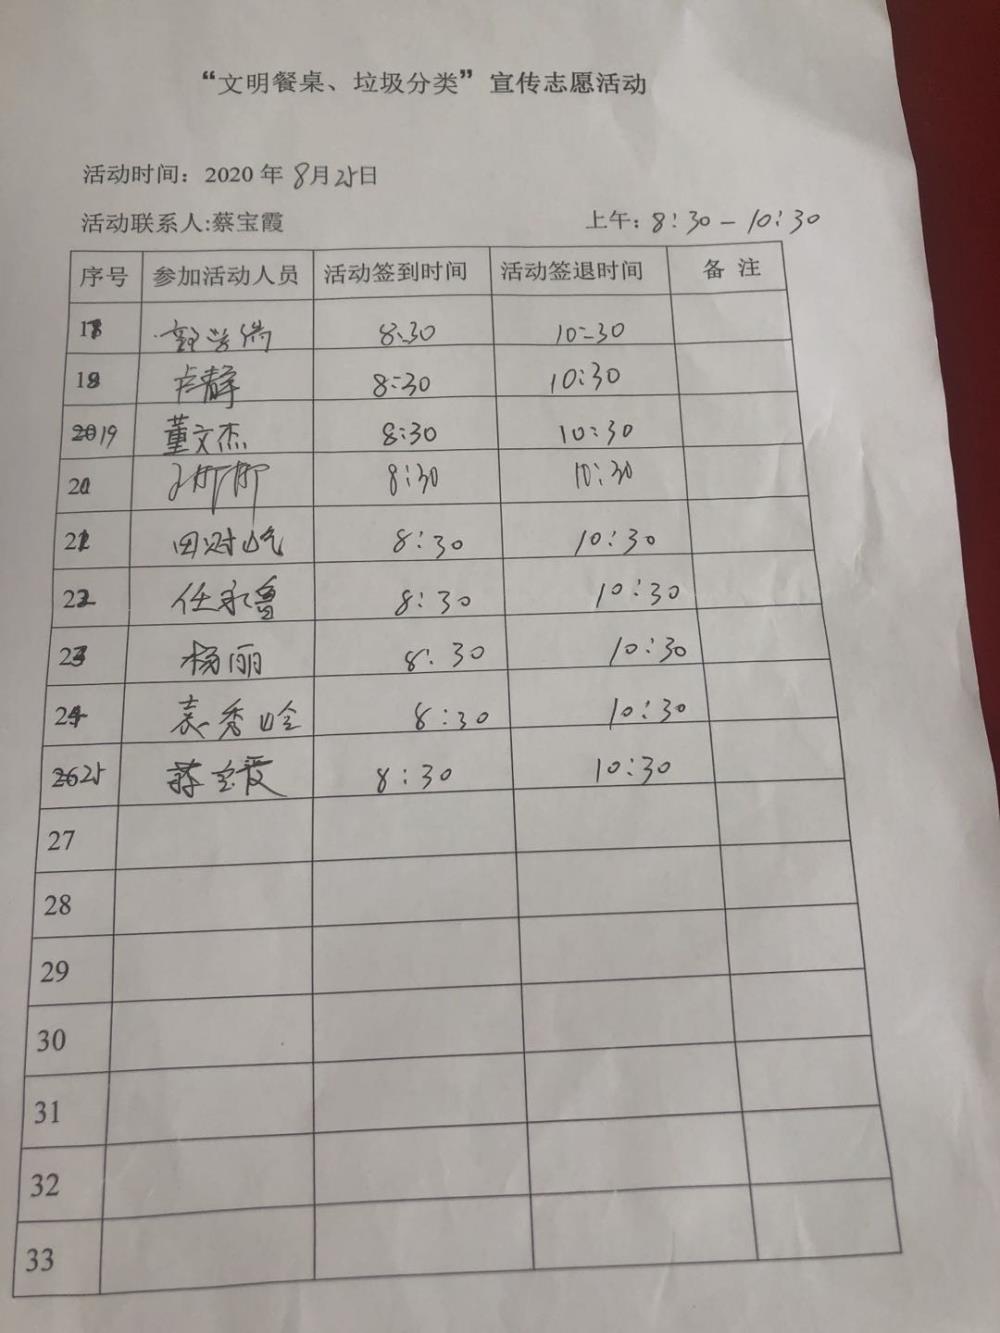 “文明餐桌、垃圾分类”宣传志愿活动
活动时间：2020 年 8月25日
活动联系人:蔡宝霞 上午: 8:30-10:30
序号 参加活动人员 活动签到时间 活动签退时间 备 注
17 8:30 10:30
18 卢静 8:30 10:30
19 董文杰 8:30 10:30
20 8:30 10:30
21 8:30 10:30
22 任永鲁 8:30 10:30
23 杨丽 8:30 10:30
24 袁秀岭 8:30 10:30
25 8:30 10:30
27
28
29
30
31
32
33